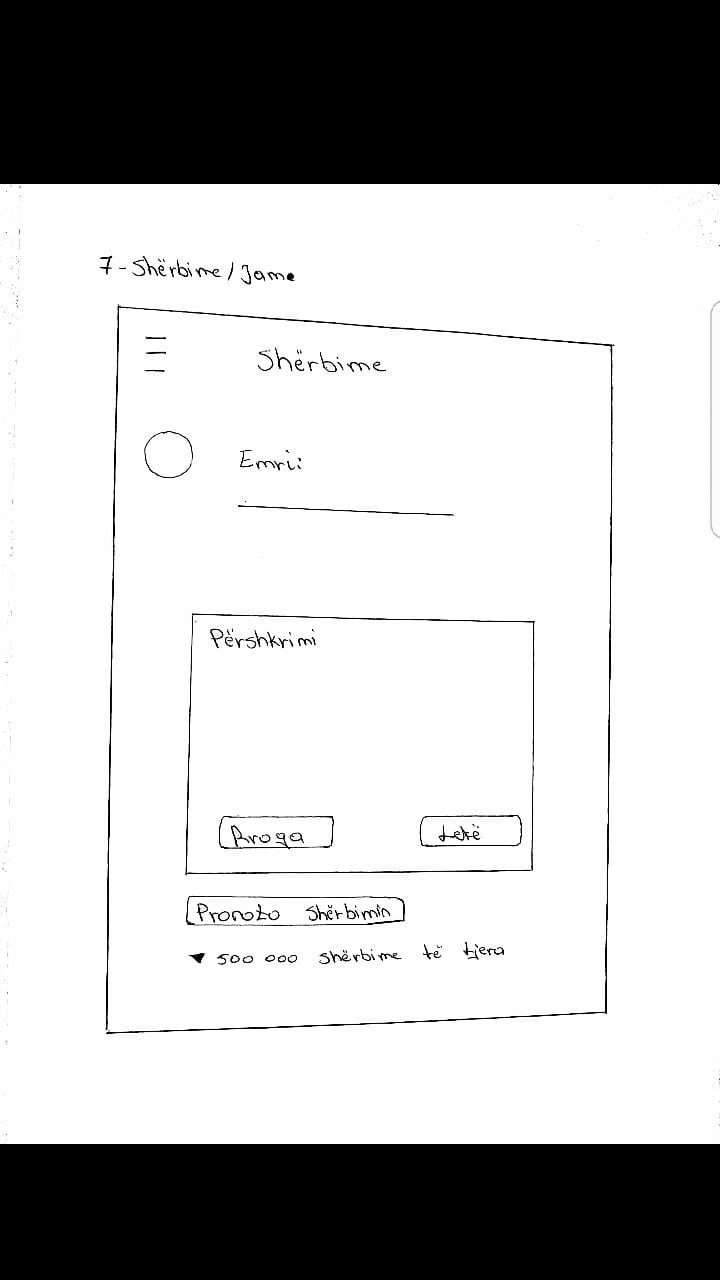 7 - Shërbime / Jame
Shërbime
Emri:
Përshkrimi
Rroga
Lekë
Pronoto Shërbimin
▼ 500 000 shërbime të tjera